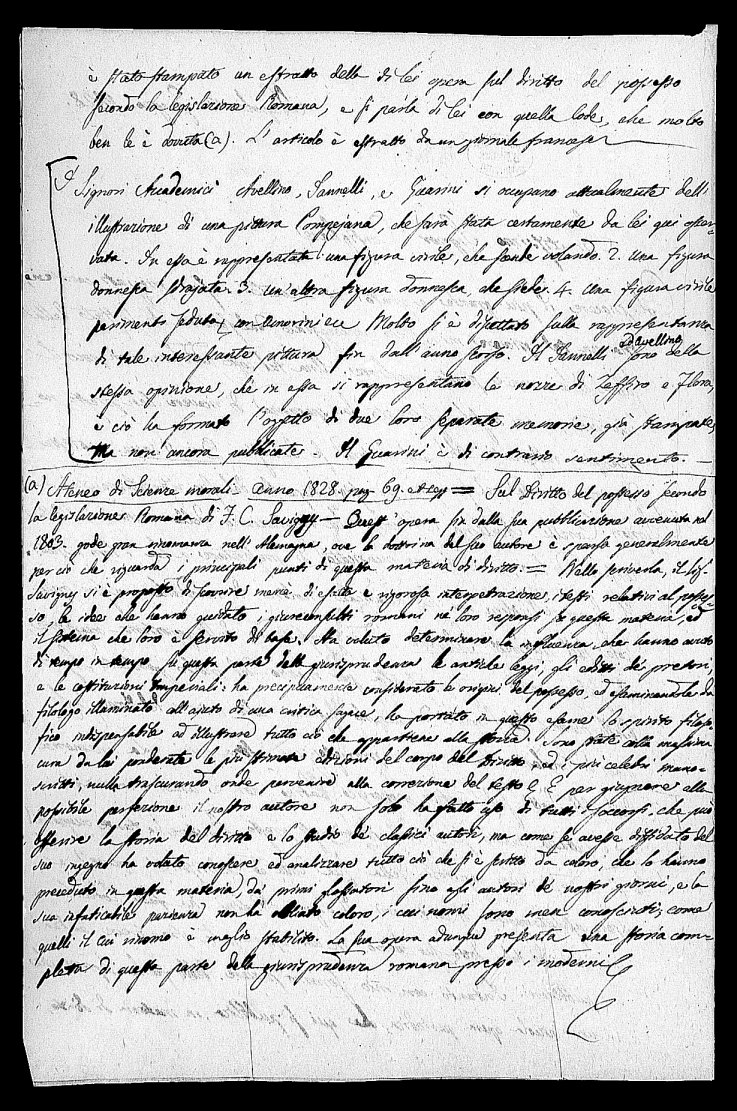 è stato stampato un estratto della di lei opera sul diritto del possesso
secondo la legislazione Romana, e si parla di lei con quella lode, che molto
ben le è dovuta (a). L'articolo è estratto da un giornale francese
I Signori Accademici Avellino, Iannelli, e Guarini si occupano attualmente dell'
illustrazione di una pittura Pompejana, che sarà stata certamente da lei qui osser-
vata. In essa è rappresentata 1 una figura virile, che scende volando. 2. una figura
donnesca sdrajata. 3. un'altra figura donnesca, che siede. 4. una figura virile
parimenti seduta, con Amorini ecc Molto si è disputato sulla rappresentanza
di tale interessante pittura fin dall'anno scorso. Il Iannelli ed Avellino sono della
stessa opinione, che in essa si rappresentano le nozze di Zeffiro e Flora,
e ciò ha formato l'oggetto di due loro separate memorie, già stampate,
ma non ancora pubblicate. Il Guarini è di contrario sentimento.
(a) Ateneo di Scienze morali anno 1828. pag 69. et seq = Sul Diritto del possesso secondo
la legislazione Romana di F. C. Savigny — Quest'opera fin dalla sua pubblicazione avvenuta nel
1803. gode gran rinomanza nell'Alemagna, ove la dottrina del suo autore è sparsa generalmente
per ciò che riguarda i principali punti di questa materia di diritto. = Nello scriverla, il Sig.
Savigny si è proposto di fornire mercè di esatta e rigorosa interpretazione, i testi relativi al posses-
so, le idee che hanno guidato i giureconsulti romani ne loro responsi su questa materia, ed
il sistema che loro è servito di base. Ha voluto determinare la influenza, che hanno avuto
di tempo in tempo su questa parte della giurisprudenza le antiche leggi, gli editti de' pretori,
e le costituzioni Imperiali: ha precipuamente considerato le origini del possesso, ed esaminandole da
filologo illuminato all'ajuto di una critica sagace, ha portato in questo esame lo spirito filoso-
fico indispensabile ad illustrare tutto ciò che appartiene alla storia. Sono state colla massima
cura da lui ponderate le più stimate edizioni del corpo del Diritto ed i più celebri mano-
scritti, nulla trascurando onde pervenire alla correzione del testo E per giugnere alla
possibile perfezione il nostro autore non solo ha fatto uso di tutti i soccorsi, che può
offerire la storia del diritto e lo studio de' classici autori, ma come se avesse diffidato del
suo ingegno ha voluto conoscere ed analizzare tutto ciò che si è scritto da coloro, che lo hanno
preceduto in questa materia, da primi glossatori fino agli autori de' nostri giorni, e la
sua infaticabile pazienza non ha obliato coloro, i cui nomi sono men conosciuti, come
quelli il cui rinomo è meglio stabilito. La sua opera adunque presenta una storia com-
pletta di questa parte della giurisprudenza romana presso i moderni